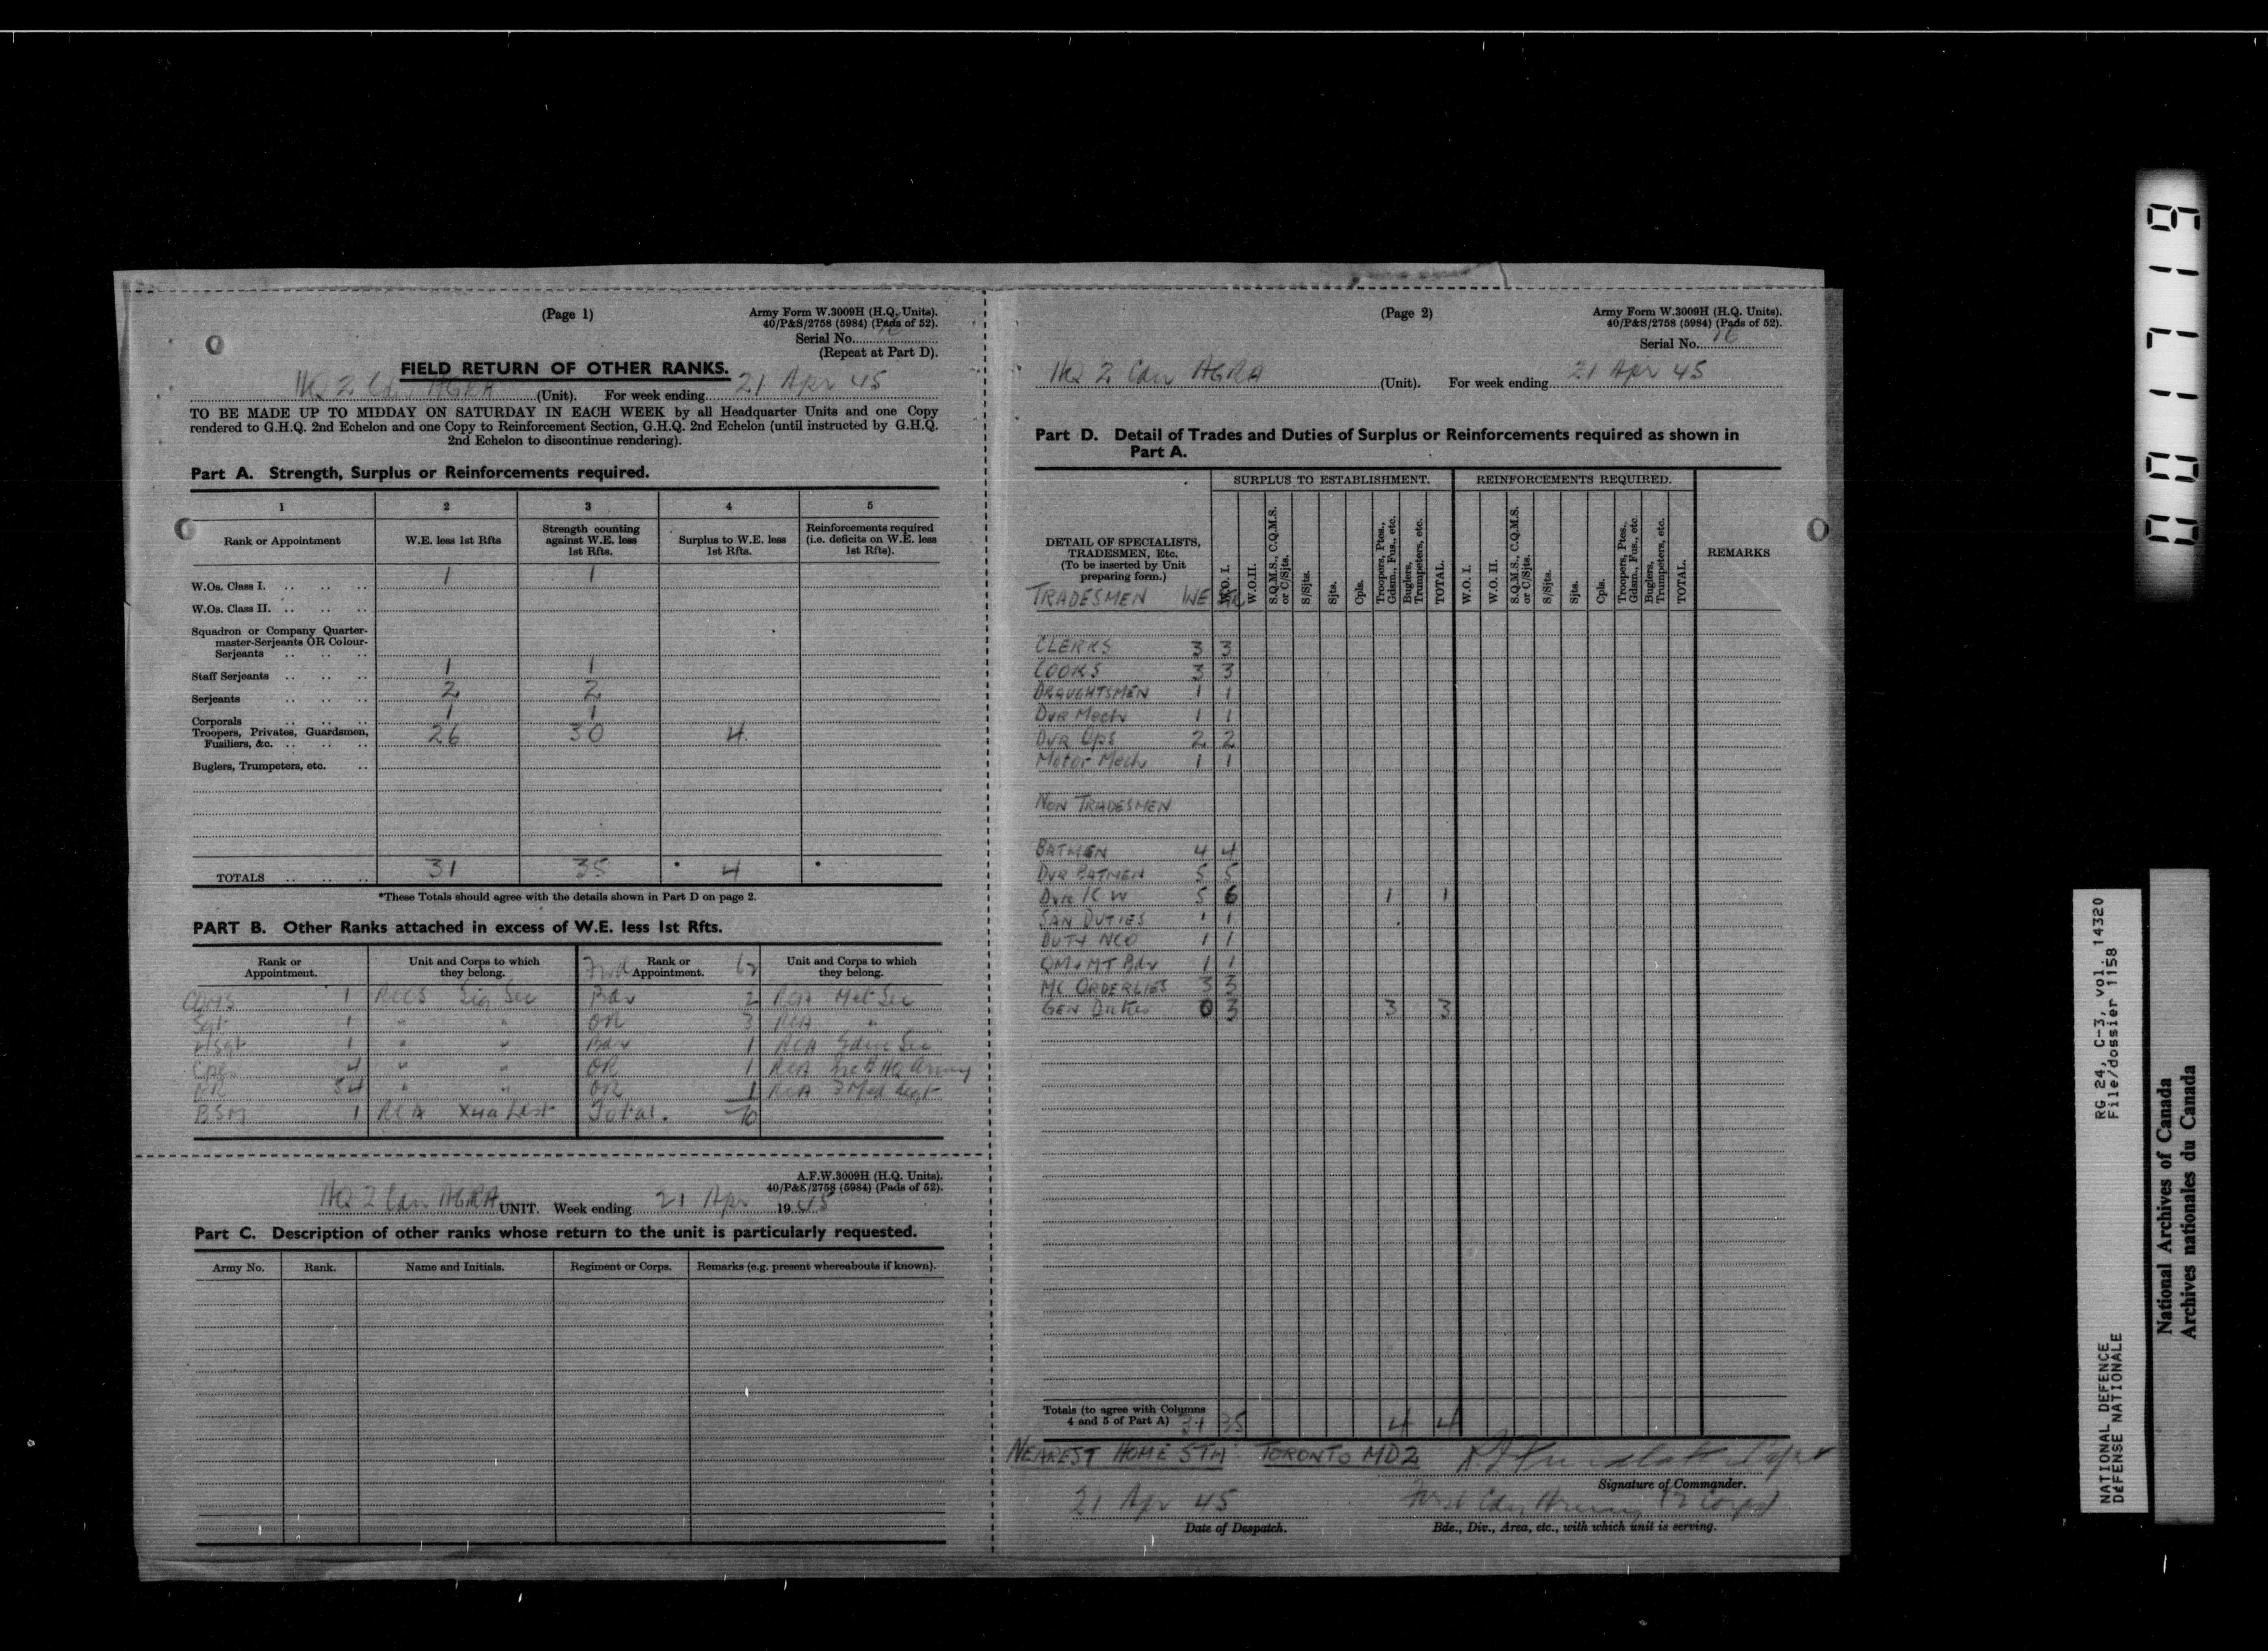 (Page 1)
Army Form W.3009H (H.Q. Units).
40/P&S/2758 (5984) (Pads of 52).
Serial No. 16
(Repeat at Part D).
FIELD RETURN OF OTHER RANKS.
HQ 2 Cdn AGRA (Unit). For week ending 21 Apr 45
TO BE MADE UP TO MIDDAY ON SATURDAY IN EACH WEEK by all Headquarter Units and one Copy
rendered to G.H.Q. 2nd Echelon and one Copy to Reinforcement Section, G.H.Q. 2nd Echelon (until instructed by G.H.Q.
2nd Echelon to discontinue rendering).
Part A. Strength, Surplus or Reinforcements required.
1 2 3 4 5
Rank or Appointment
W.E. less 1st Rfts
Strength counting
against W.E. less
1st Rfts.
Surplus to W.E. less
1st Rfts.
Reinforcements required
(i.e. deficits on W.E. less
1st Rfts).
W.Os. Class I. .. .. .. 1 1
W.Os. Class II. .. .. ..
Squadron or Company Quarter-
master-Serjeants OR Colour-
Serjeants .. .. ..
Staff Serjeants .. .. .. 1 1
Serjeants .. .. .. 2 2
Corporals .. .. .. 1 1
Troopers, Privates, Guardsmen,
Fusiliers, &c. .. .. .. 26 30 4
Buglers, Trumpeters, etc. ..
TOTALS .. .. .. 31 35 * 4 *
*These Totals should agree with the details shown in Part D on page 2.
PART B. Other Ranks attached in excess of W.E. less 1st Rfts.
Rank or
Appointment.
Unit and Corps to which
they belong.
Fwd Rank or
Appointment. 62
Unit and Corps to which
they belong.
CQMS 1 RCCS Sig Sec Bdr 2 RCA Met Sec
Sgt 1 " " OR 3 RCA "
L/Sgt 1 " " Bdr 1 RCA Educ Sec
Cpls 4 " " OR 1 RCA HQ Army
OR 54 " " OR 1 RCA 3 Med Regt
BSM 1 RCA X4a List Total. 70
A.F.W.3009H (H.Q. Units).
40/P&S/2758 (5984) (Pads of 52).
HQ 2 Cdn AGRA UNIT. Week ending 21 Apr 1945
Part C. Description of other ranks whose return to the unit is particularly requested.
Army No. Rank. Name and Initials. Regiment or Corps. Remarks (e.g. present whereabouts if known).
(Page 2)
Army Form W.3009H (H.Q. Units).
40/P&S/2758 (5984) (Pads of 52).
Serial No. 16
HQ 2 Cdn AGRA (Unit). For week ending 21 Apr 45
Part D. Detail of Trades and Duties of Surplus or Reinforcements required as shown in
Part A.
SURPLUS TO ESTABLISHMENT. REINFORCEMENTS REQUIRED.
DETAIL OF SPECIALISTS,
TRADESMEN, Etc.
(To be inserted by Unit
preparing form.)
W.O. I.
W.O.II.
S.Q.M.S., C.Q.M.S.
or C/Sjts.
S/Sjts.
Sjts.
Cpls.
Troopers, Ptes.,
Gdsm., Fus., etc.
Buglers,
Trumpeters, etc.
TOTAL.
W.O. I.
W.O. II.
S.Q.M.S., C.Q.M.S.
or C/Sjts.
S/Sjts.
Sjts.
Cpls.
Troopers, Ptes.,
Gdsm., Fus., etc.
Buglers,
Trumpeters, etc.
TOTAL.
REMARKS
TRADESMEN WE
CLERKS 3 3
COOKS 3 3
DRAUGHTSMEN 1 1
DVR Mech 1 1
DVR Ops 2 2
Motor Mech 1 1
NON TRADESMEN
BATMEN 4 4
DVR BATMEN 5 5
DVR IC W 5 6 1 1
SAN DUTIES 1 1
DUTY NCO 1 1
QM & MT Bdr 1 1
MC ORDERLIES 3 3
GEN Duties 0 3 3 3
Totals (to agree with Columns
4 and 5 of Part A) 31 35 4 4
NEAREST HOME STN: TORONTO MD2
Capt
Signature of Commander.
21 Apr 45
Date of Despatch.
First Cdn Army (2 Corps)
Bde., Div., Area, etc., with which unit is serving.
001719
RG 24, C-3, vol. 14320
File/dossier 1158
NATIONAL DEFENCE
DÉFENSE NATIONALE
National Archives of Canada
Archives nationales du Canada